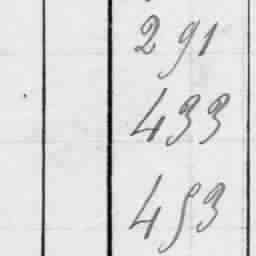 291
433
453